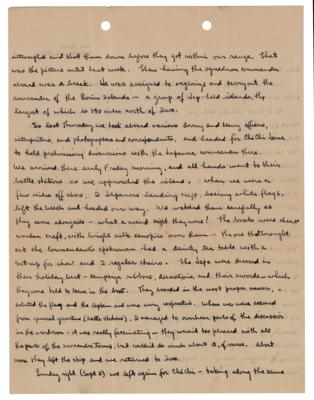 intercepted and shot them down before they got within our range. That
was the picture until last week. Then having the squadron commander
aboard was a break. He was assigned to organize and carry out the
surrender of the Bonin Islands - a group of Jap-held islands, the
largest of which is 140 miles north of Iwo.
So last Thursday we took aboard various army and Navy officers,
interpreters, and photographers and correspondents, and headed for ChiChi Jima
to hold preliminary discussions with the Japanese commanders there.
We arrived there early Friday morning, and all hands went to their
battle stations as we approached the island. When we were a
few miles off shore, 2 Japanese landing craft, bearing white flags,
left the beach and headed our way. We watched them carefully as
they came alongside - what a weird sight they were! The boats were cheap
wooden craft, with bright silk canopies over them - the one that brought
out the commander's spokesman had a dainty tea table with a
set-up for chow and 2 regular chairs. The Japs were dressed in
their holiday best - campaign ribbons, decorations, and their swords - which
they were told to leave in the boat. They boarded in the most proper manner,
saluted the flag and the Captain and were very cooperative. When we were secured
from general quarters (battle stations), I managed to overhear parts of the discussion
in the wardroom - it was really fascinating - they weren't too pleased with all
the parts of the surrender terms, but couldn't do much about it, of course. About
noon they left the ship and we returned to Iwo.
Sunday night (Sept 2) we left again for ChiChi - taking along the same